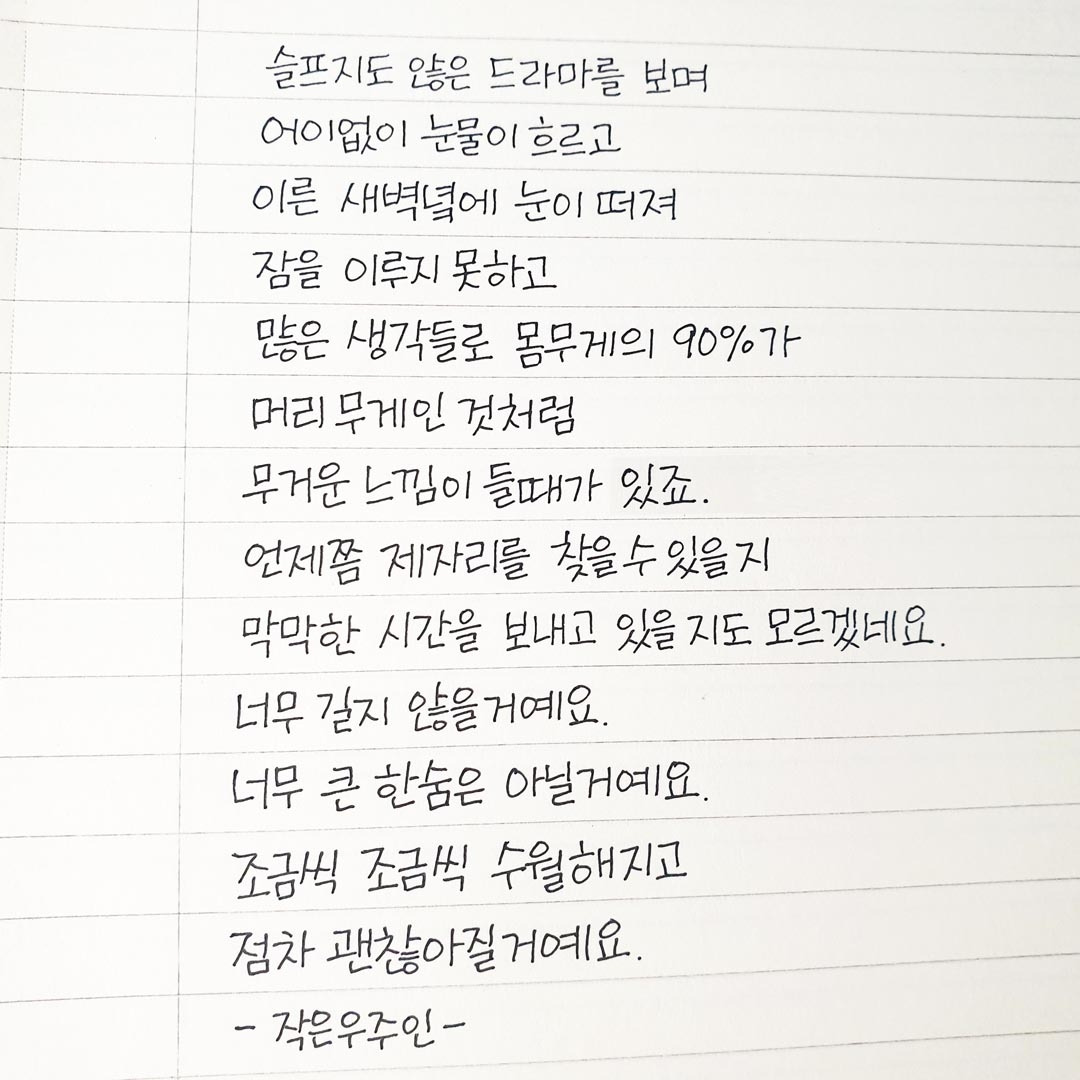 슬프지도 않은 드라마를 보며
어이없이 눈물이 흐르고
이른 새벽녘에 눈이 떠져
잠을 이루지 못하고
많은 생각들로 몸무게의 90%가
머리 무게인 것처럼
무거운 느낌이 들때가 있죠.
언제쯤 제자리를 찾을 수 있을지
막막한 시간을 보내고 있을지도 모르겠네요.
너무 길지 않을거예요.
너무 큰 한숨은 아닐거예요.
조금씩 조금씩 수월해지고
점차 괜찮아질거예요.
- 작은우주인 -